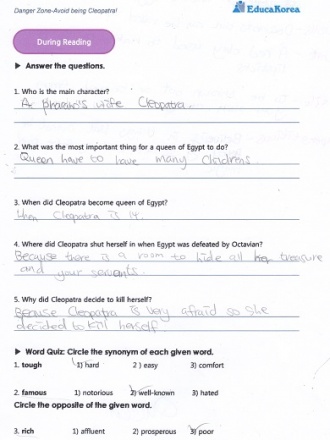 Danger Zone-Avoid being Cleopatra!
EducaKorea
During Reading
▶ Answer the questions.
1. Who is the main character?
A pharaoh's wife Cleopatra.
2. What was the most important thing for a queen of Egypt to do?
Queen have to have many Clidrens.
3. When did Cleopatra become queen of Egypt?
When Cleopatra is 17.
4. Where did Cleopatra shut herself in when Egypt was defeated by Octavian?
Because there is a room to hide all treasure
and your servants.
5. Why did Cleopatra decide to kill herself?
Because Cleopatra is very afraid so she
decided to kill herself
▶ Word Quiz: Circle the synonym of each given word.
1. tough 1) hard 2 ) easy 3) comfort
2. famous 1) notorious 2) well-known 3) hated
Circle the opposite of the given word.
3. rich 1) affluent 2) prosperous 3) poor